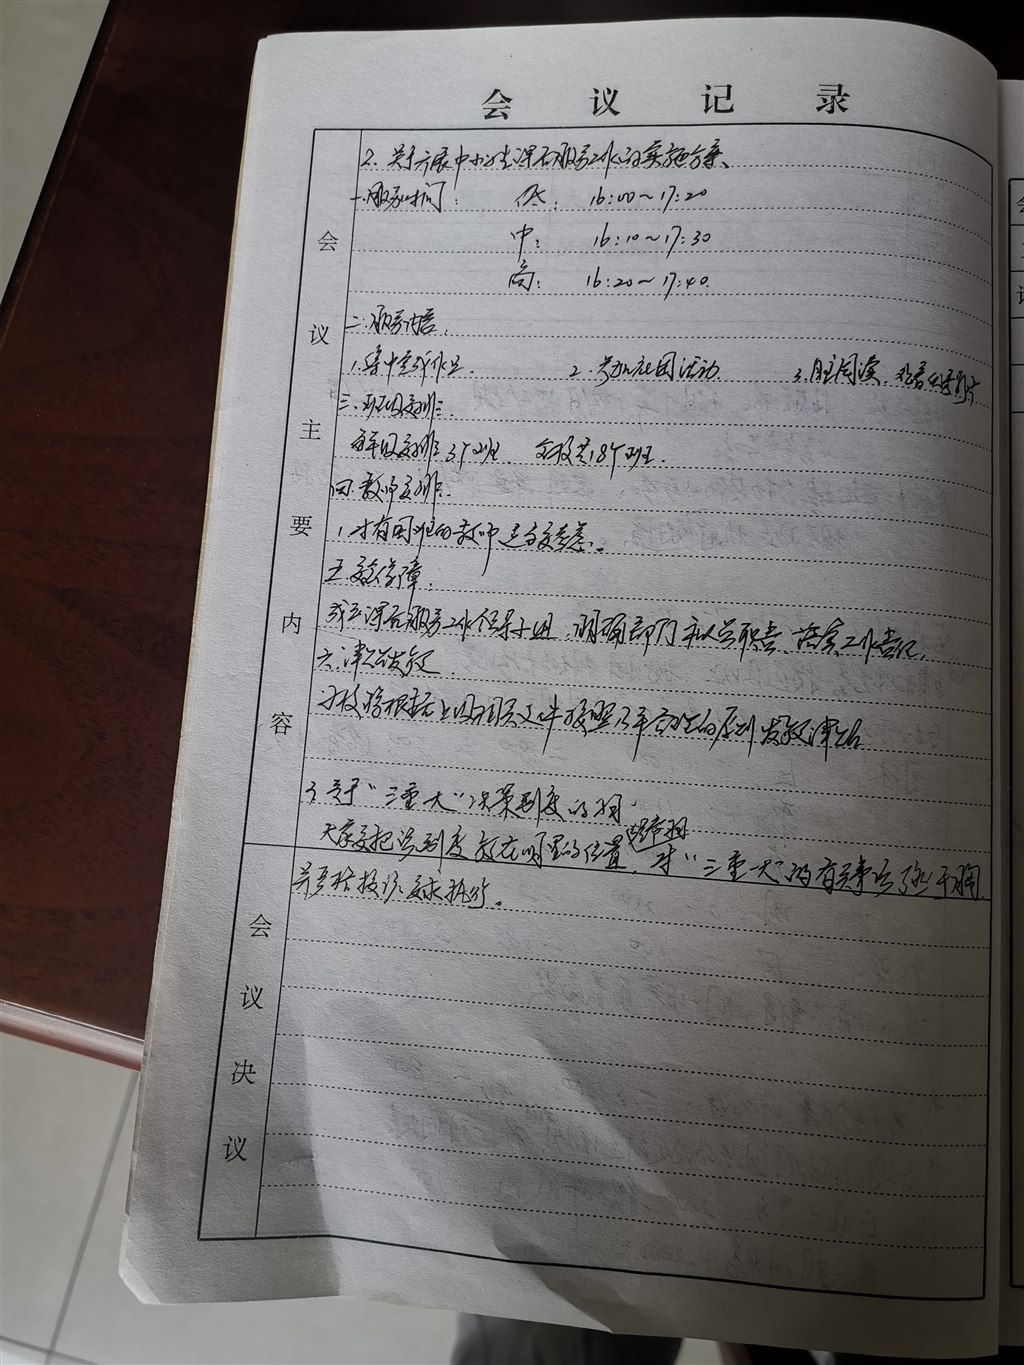 会 议 记 录
会议主要内容
2. 关于开展中小学生课后服务工作的实施方案、
一.服务时间: 低: 16:00~17:20
中: 16:10~17:30
高: 16:20~17:40.
二.服务内容.
1.集中完成作业. 2.参加社团活动. 3.自主阅读.
三.班级安排:
每年级安排3个班. 全校共18个班.
四.教师安排:
1.才有同班的教师
五.
成立课后服务工作领导小组,明确部门和人员职责、落实工作责任.
六.津贴发放.
学校将根据上级相关文件按照的原则发放津贴
3.关于“三重一大”决策制度的
大家要把该制度放在明显的位置,对“三重一大”的有关事项了如于胸.
并严格按该要求执行。
会议决议